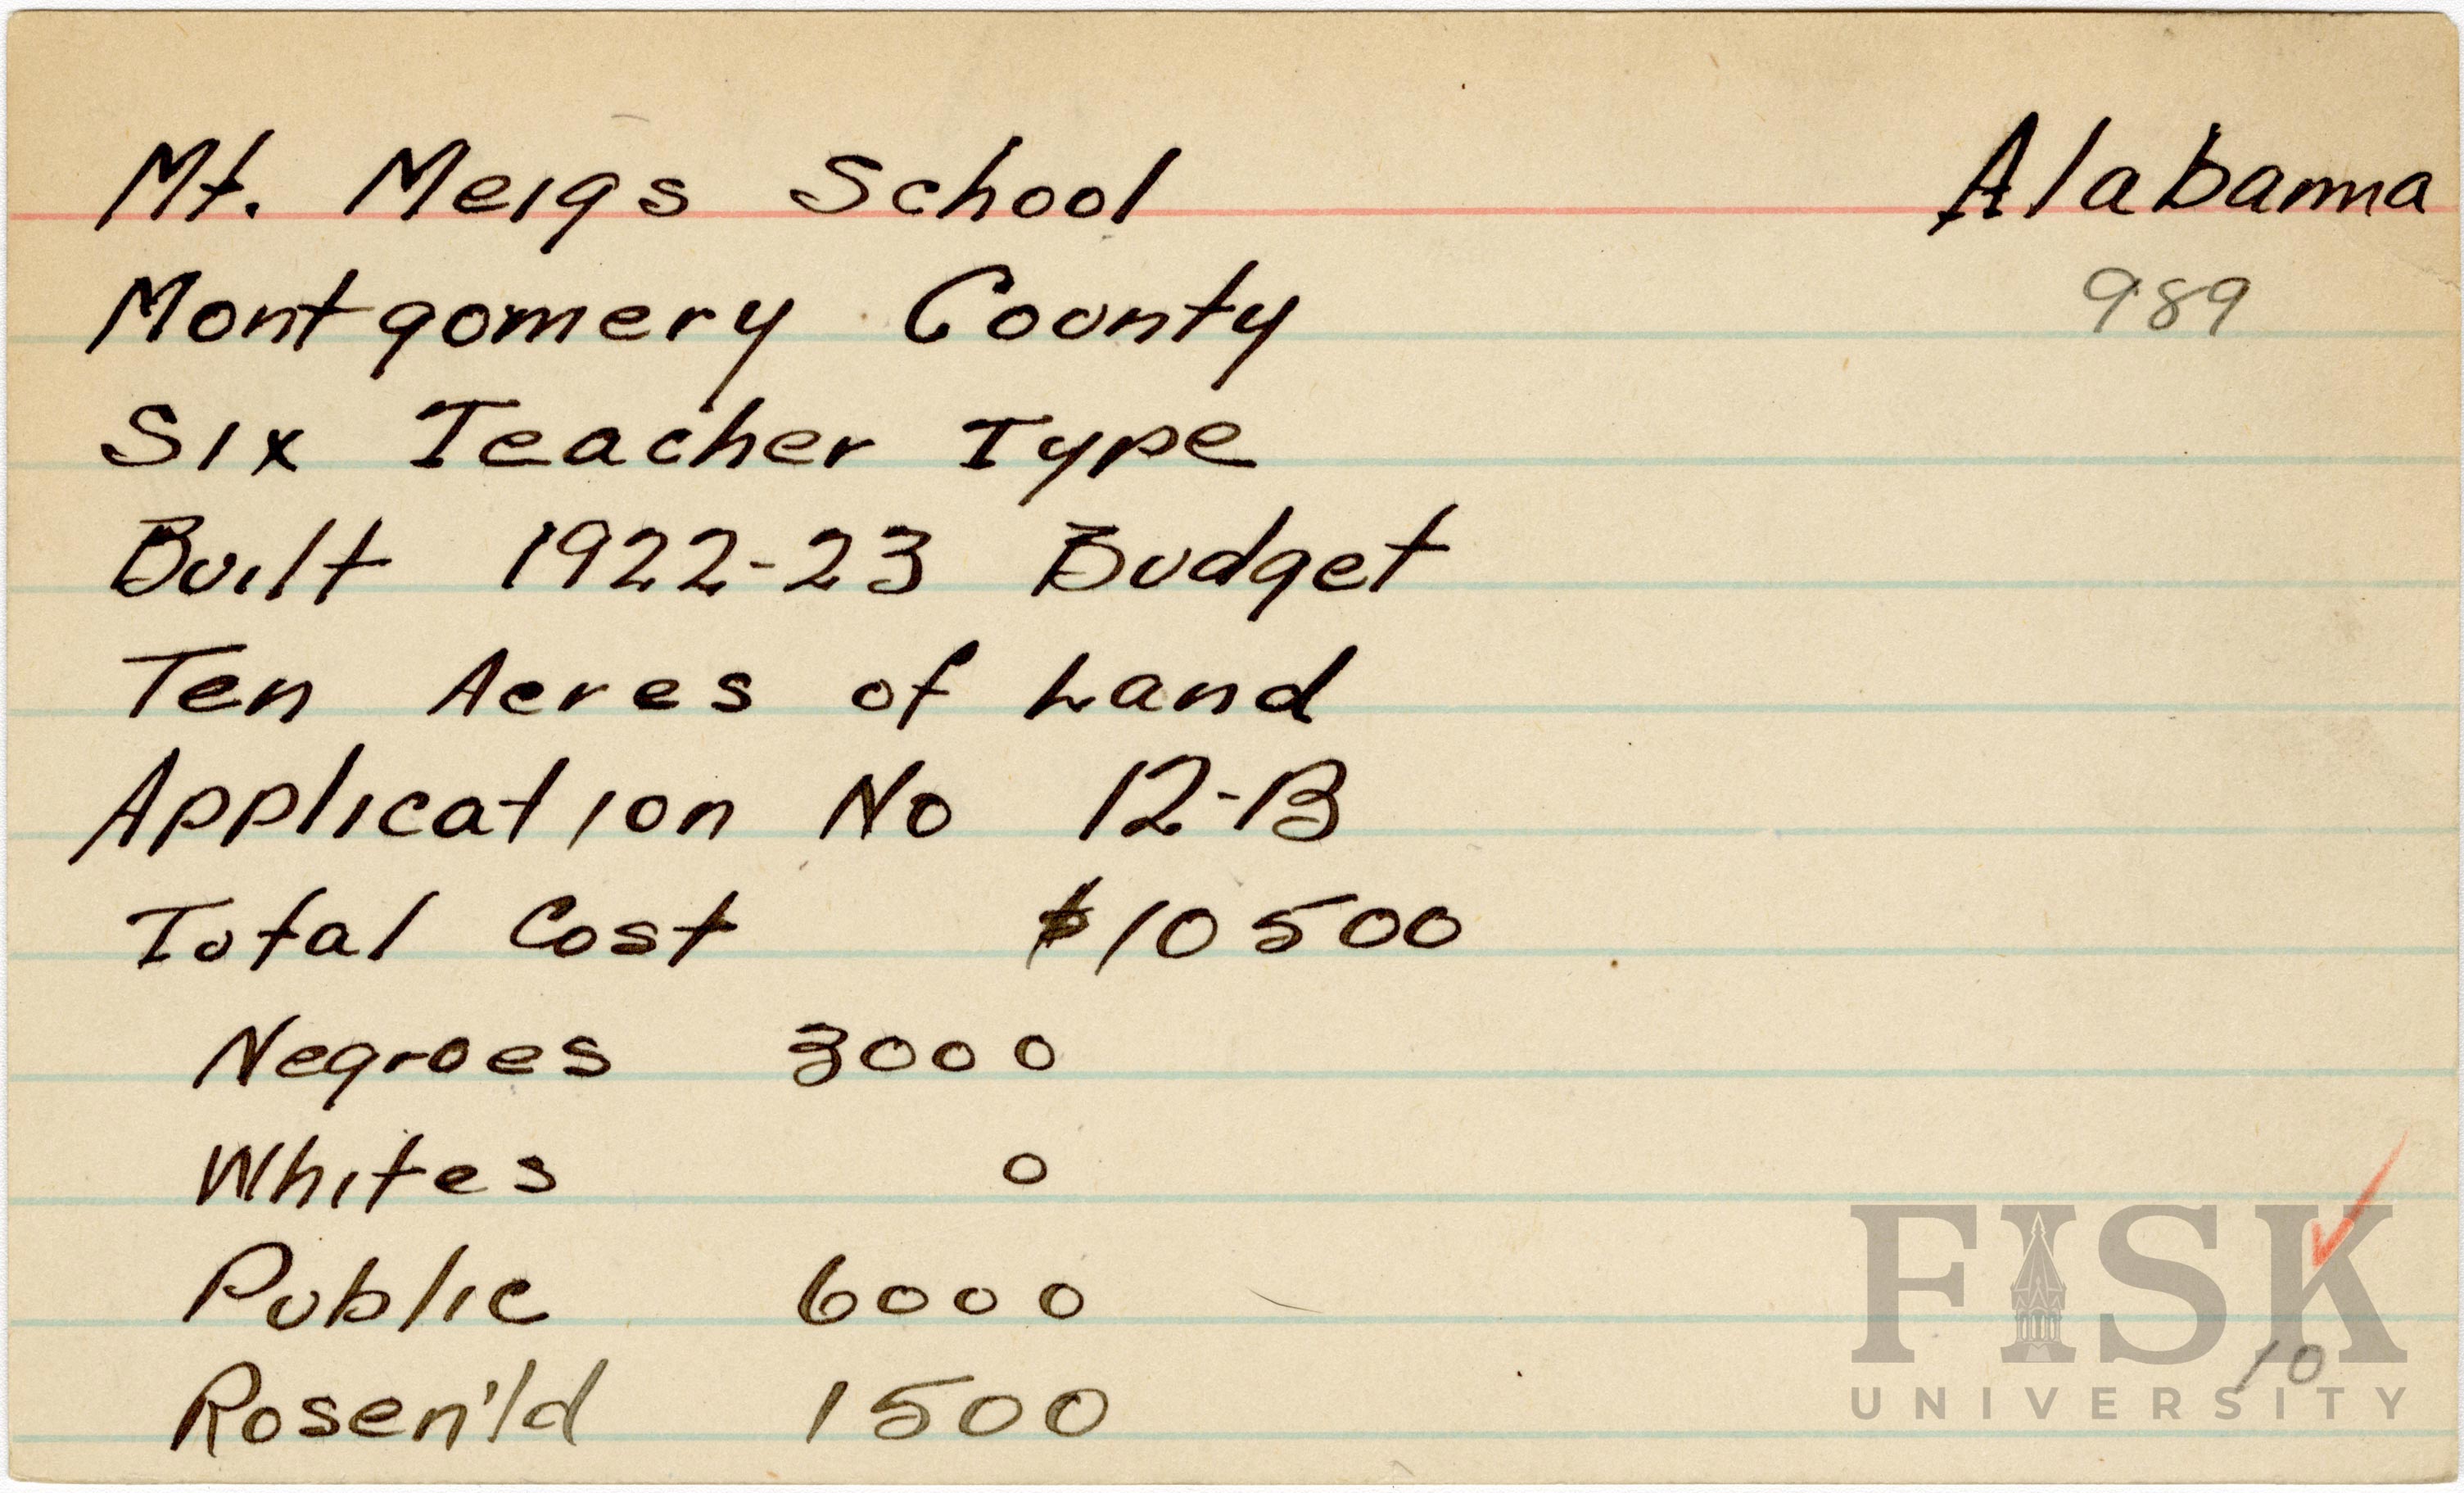 Mt. Meigs School Alabama
Montgomery County 989
Six Teacher Type
Built 1922-23 Budget
Ten Acres of Land
Application No 12-B
Total Cost $10500
Negroes 3000
Whites 0
Public 6000
Rosen'ld 1500
10
FISK
UNIVERSITY